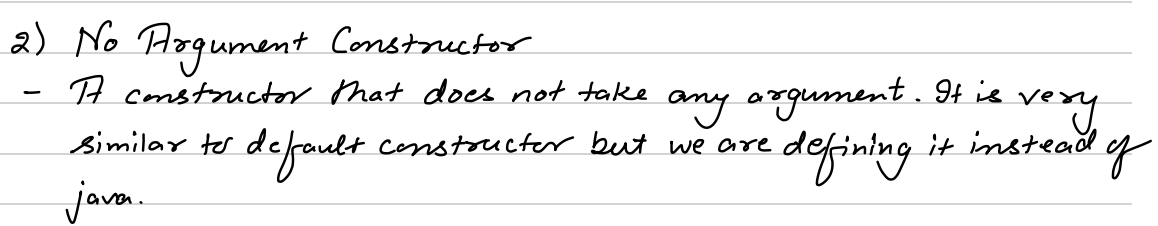 2) No Argument Constructor
- A constructor that does not take any argument. It is very
similar to default constructor but we are defining it instead of
java.